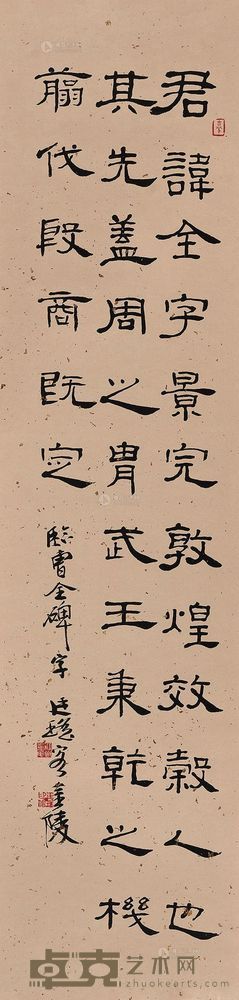 君諱全字景完敦煌效穀人也
其先蓋周之胄武王秉乾之機
翦伐殷商既定
臨曹全碑字
金陵
卓克艺术网
www.zhuokearts.com